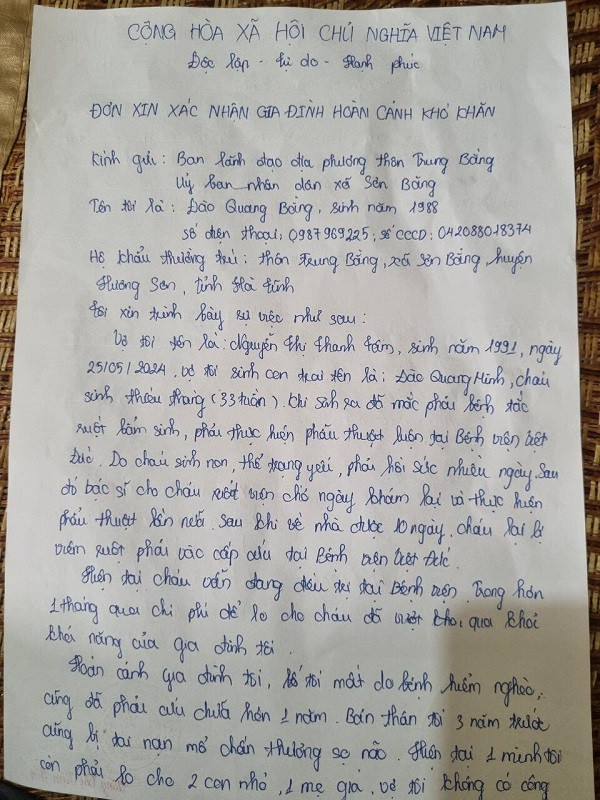 CỘNG HÒA XÃ HỘI CHỦ NGHĨA VIỆT NAM
Độc lập - tự do - Hạnh phúc
ĐƠN XIN XÁC NHẬN GIA ĐÌNH HOÀN CẢNH KHÓ KHĂN
Kính gửi: Ban lãnh đạo địa phương thôn Trung Bằng
Uỷ ban nhân dân xã Sơn Bằng
Tên tôi là: Đào Quang Bằng, sinh năm 1988
số điện thoại: 0987969225, số CCCD: 042088018374
Hộ khẩu thường trú: thôn Trung Bằng, xã Sơn Bằng, huyện
Hương Sơn, tỉnh Hà Tĩnh
tôi xin trình bày sự việc như sau:
Vợ tôi tên là: Nguyễn Thị Thanh Tâm, sinh năm 1991, ngày
25/05/2024. vợ tôi sinh con trai tên là: Đào Quang Minh, cháu
sinh thiếu tháng (33 tuần). Khi sinh ra đã mắc phải bệnh tắc
ruột bẩm sinh, phải thực hiện phẫu thuật luôn tại Bệnh viện Việt
Đức. Do cháu sinh non, thể trạng yếu, phải hồi sức nhiều ngày. Sau
đó bác sĩ cho cháu xuất viện chờ ngày khám lại và thực hiện
phẫu thuật lần nữa. Sau khi về nhà được 10 ngày, cháu lại bị
viêm ruột phải vào cấp cứu tại Bệnh viện Việt Đức.
Hiện tại cháu vẫn đang điều trị tại Bệnh viện. Trong hơn
1 tháng qua chi phí để lo cho cháu đã vượt qua khỏi
khả năng của gia đình tôi.
Hoàn cảnh gia đình tôi, bố tôi mất do bệnh hiểm nghèo,
cũng đã phải cứu chữa hơn 1 năm. Bản thân tôi 3 năm trước
cũng bị tai nạn mổ chấn thương sọ não. Hiện tại 1 mình tôi
còn phải lo cho 2 con nhỏ, 1 mẹ già, vợ tôi không có công